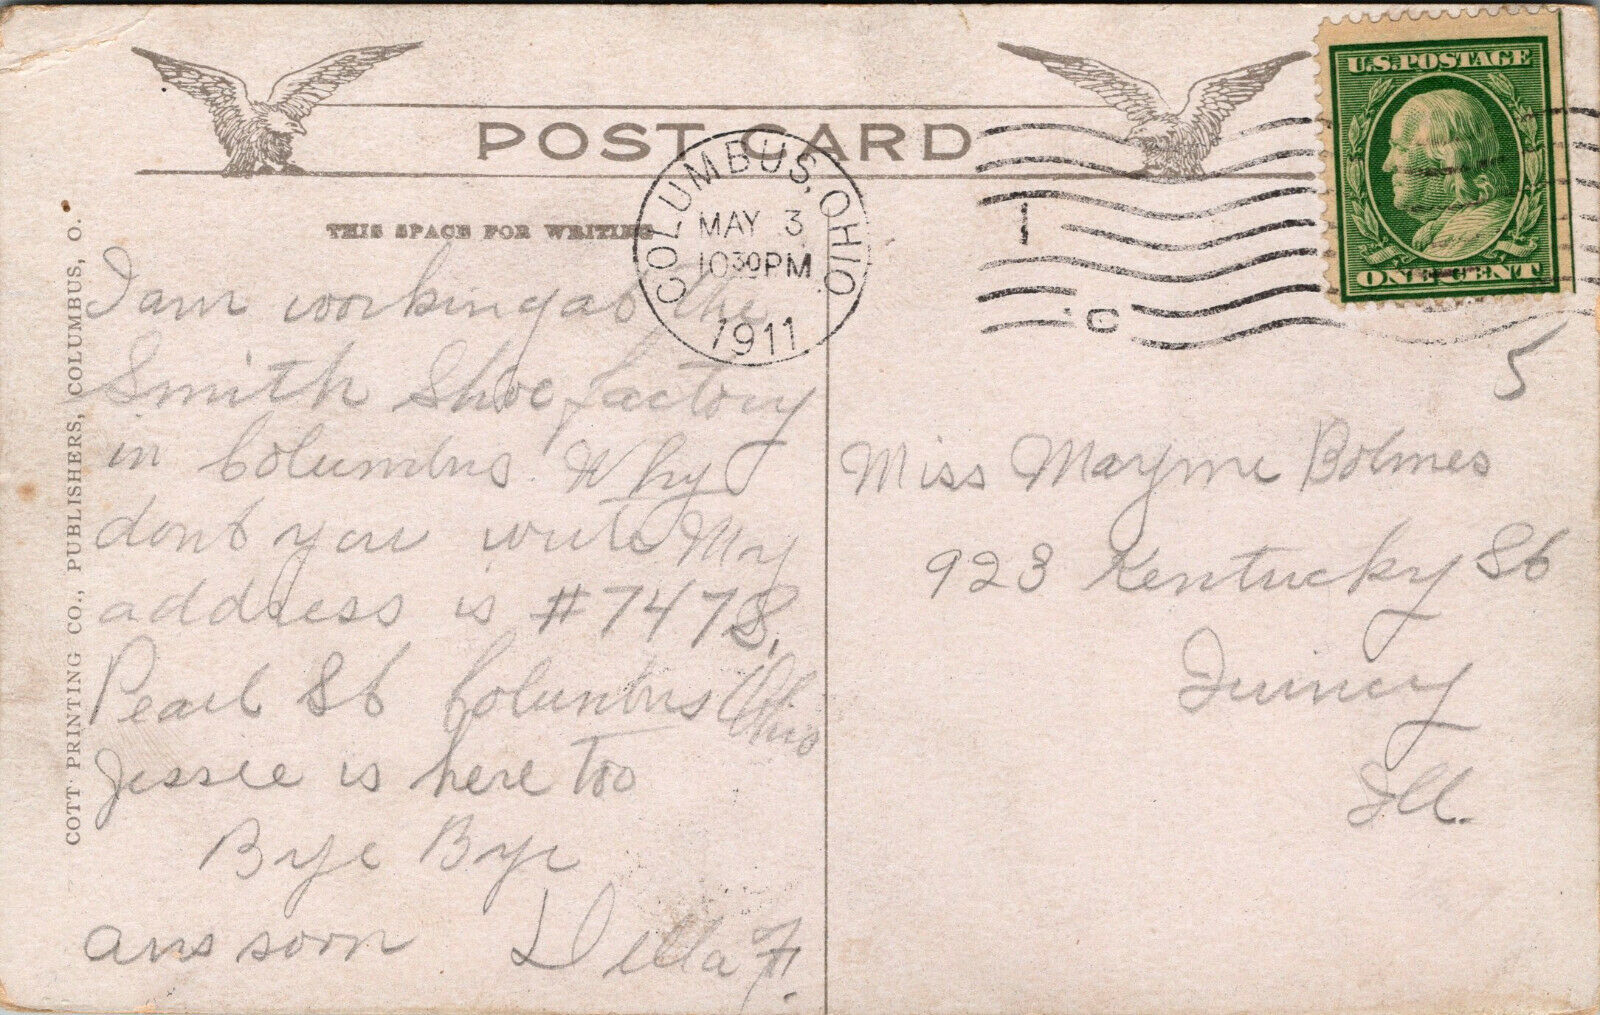 POST CARD
THIS SPACE FOR WRITING
COLUMBUS, OHIO.
MAY 3
10 30 PM
1911
1
C
U.S. POSTAGE
ONE CENT
I am working at the
Smith Shoe factory
in Columbus. Why
dont you write My
address is #747 S.
Pearl St Columbus Ohio
Jessee is here too
Bye Bye
ans soon Della F.
5
Miss Mayme Bolmes
923 Kentucky St
Quincy
Ill.
COTT PRINTING CO., PUBLISHERS, COLUMBUS, O.